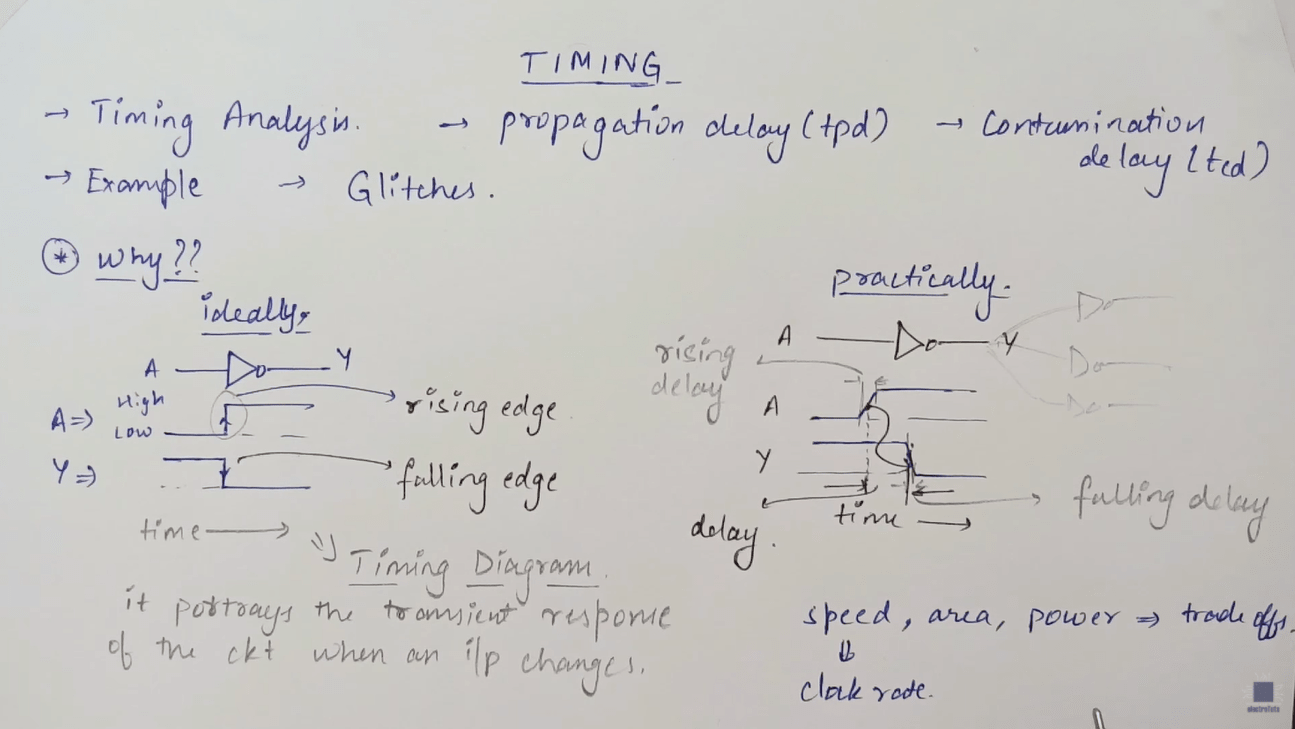 TIMING
→ Timing Analysis. → propagation delay (tpd) → Contamination
delay (tcd)
→ Example → Glitches.
* why??
ideally,
A Y
High
A⇒ rising edge
Low
Y⇒ falling edge
time →
Timing Diagram.
it portrays the transient response
of the ckt when an i/p changes.
practically.
A Y
rising
delay
A
Y
delay. time → falling delay
speed, area, power ⇒ trade offs.
⇓
clok rate.